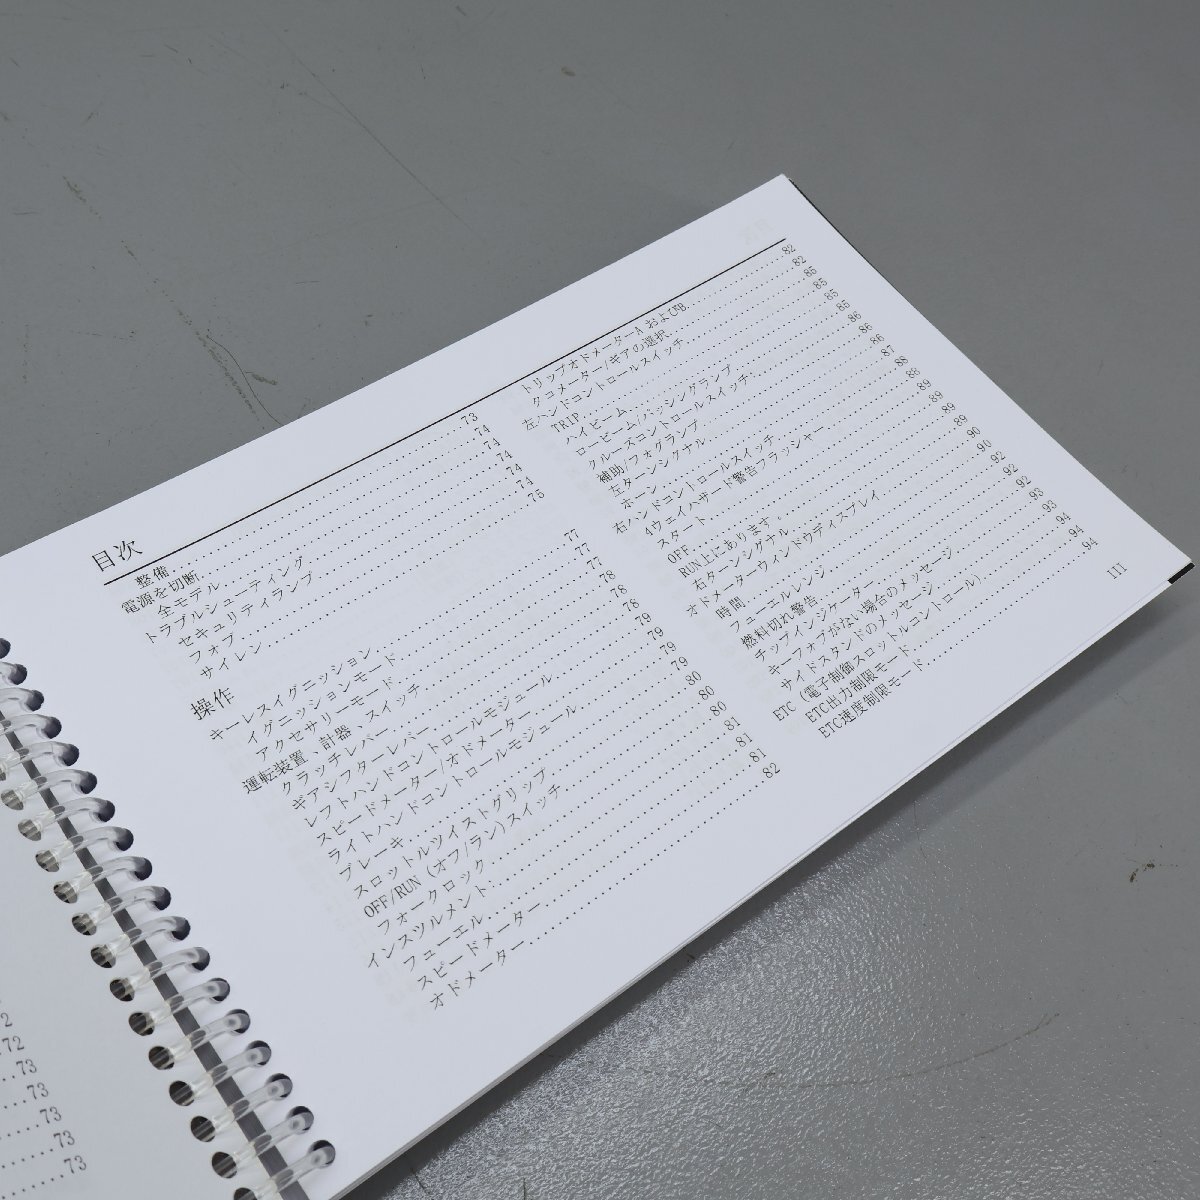 目次
整備
電源を切断
全モデル
トラブルシューティング
セキュリティランプ
フォブ
サイレン
73
74
74
74
75
操作
キーレスイグニッション
イグニッションモード
アクセサリーモード
運転装置、計器、スイッチ
クラッチレバー
ギアシフターレバー
レフトハンドコントロールモジュール
スピードメーター/オドメーター
ライトハンドコントロールモジュール
ブレーキ
スロットルツイストグリップ
OFF/RUN (オフ/ラン)スイッチ
フォークロック
インスツルメント:
フューエル
スピードメーター
オドメーター
77
77
78
78
79
79
80
80
81
81
82
トリップオドメーターA およびB
タコメーター/ギアの選択
左ハンドコントロールスイッチ
TRIP
ハイビーム
ロービーム/パッシングランプ
クルーズコントロールスイッチ:
補助/フォグランプ
左ターンシグナル
ホーン
右ハンドコントロールスイッチ
4ウェイハザード警告フラッシャー
スタート
OFF
RUN上にあります
右ターンシグナル
オドメーターウィンドウディスプレイ
時間
フューエルレンジ
燃料切れ警告
チップインジケーター
キーフォブがない場合のメッセージ
サイドスタンドのメッセージ
ETC (電子制御スロットルコントロール)
ETC出力制限モード
ETC速度制限モード
82
82
85
85
85
85
86
86
86
87
88
88
89
89
89
90
90
92
92
92
93
93
94
94
94
111
2
72
73
73
73
73
73